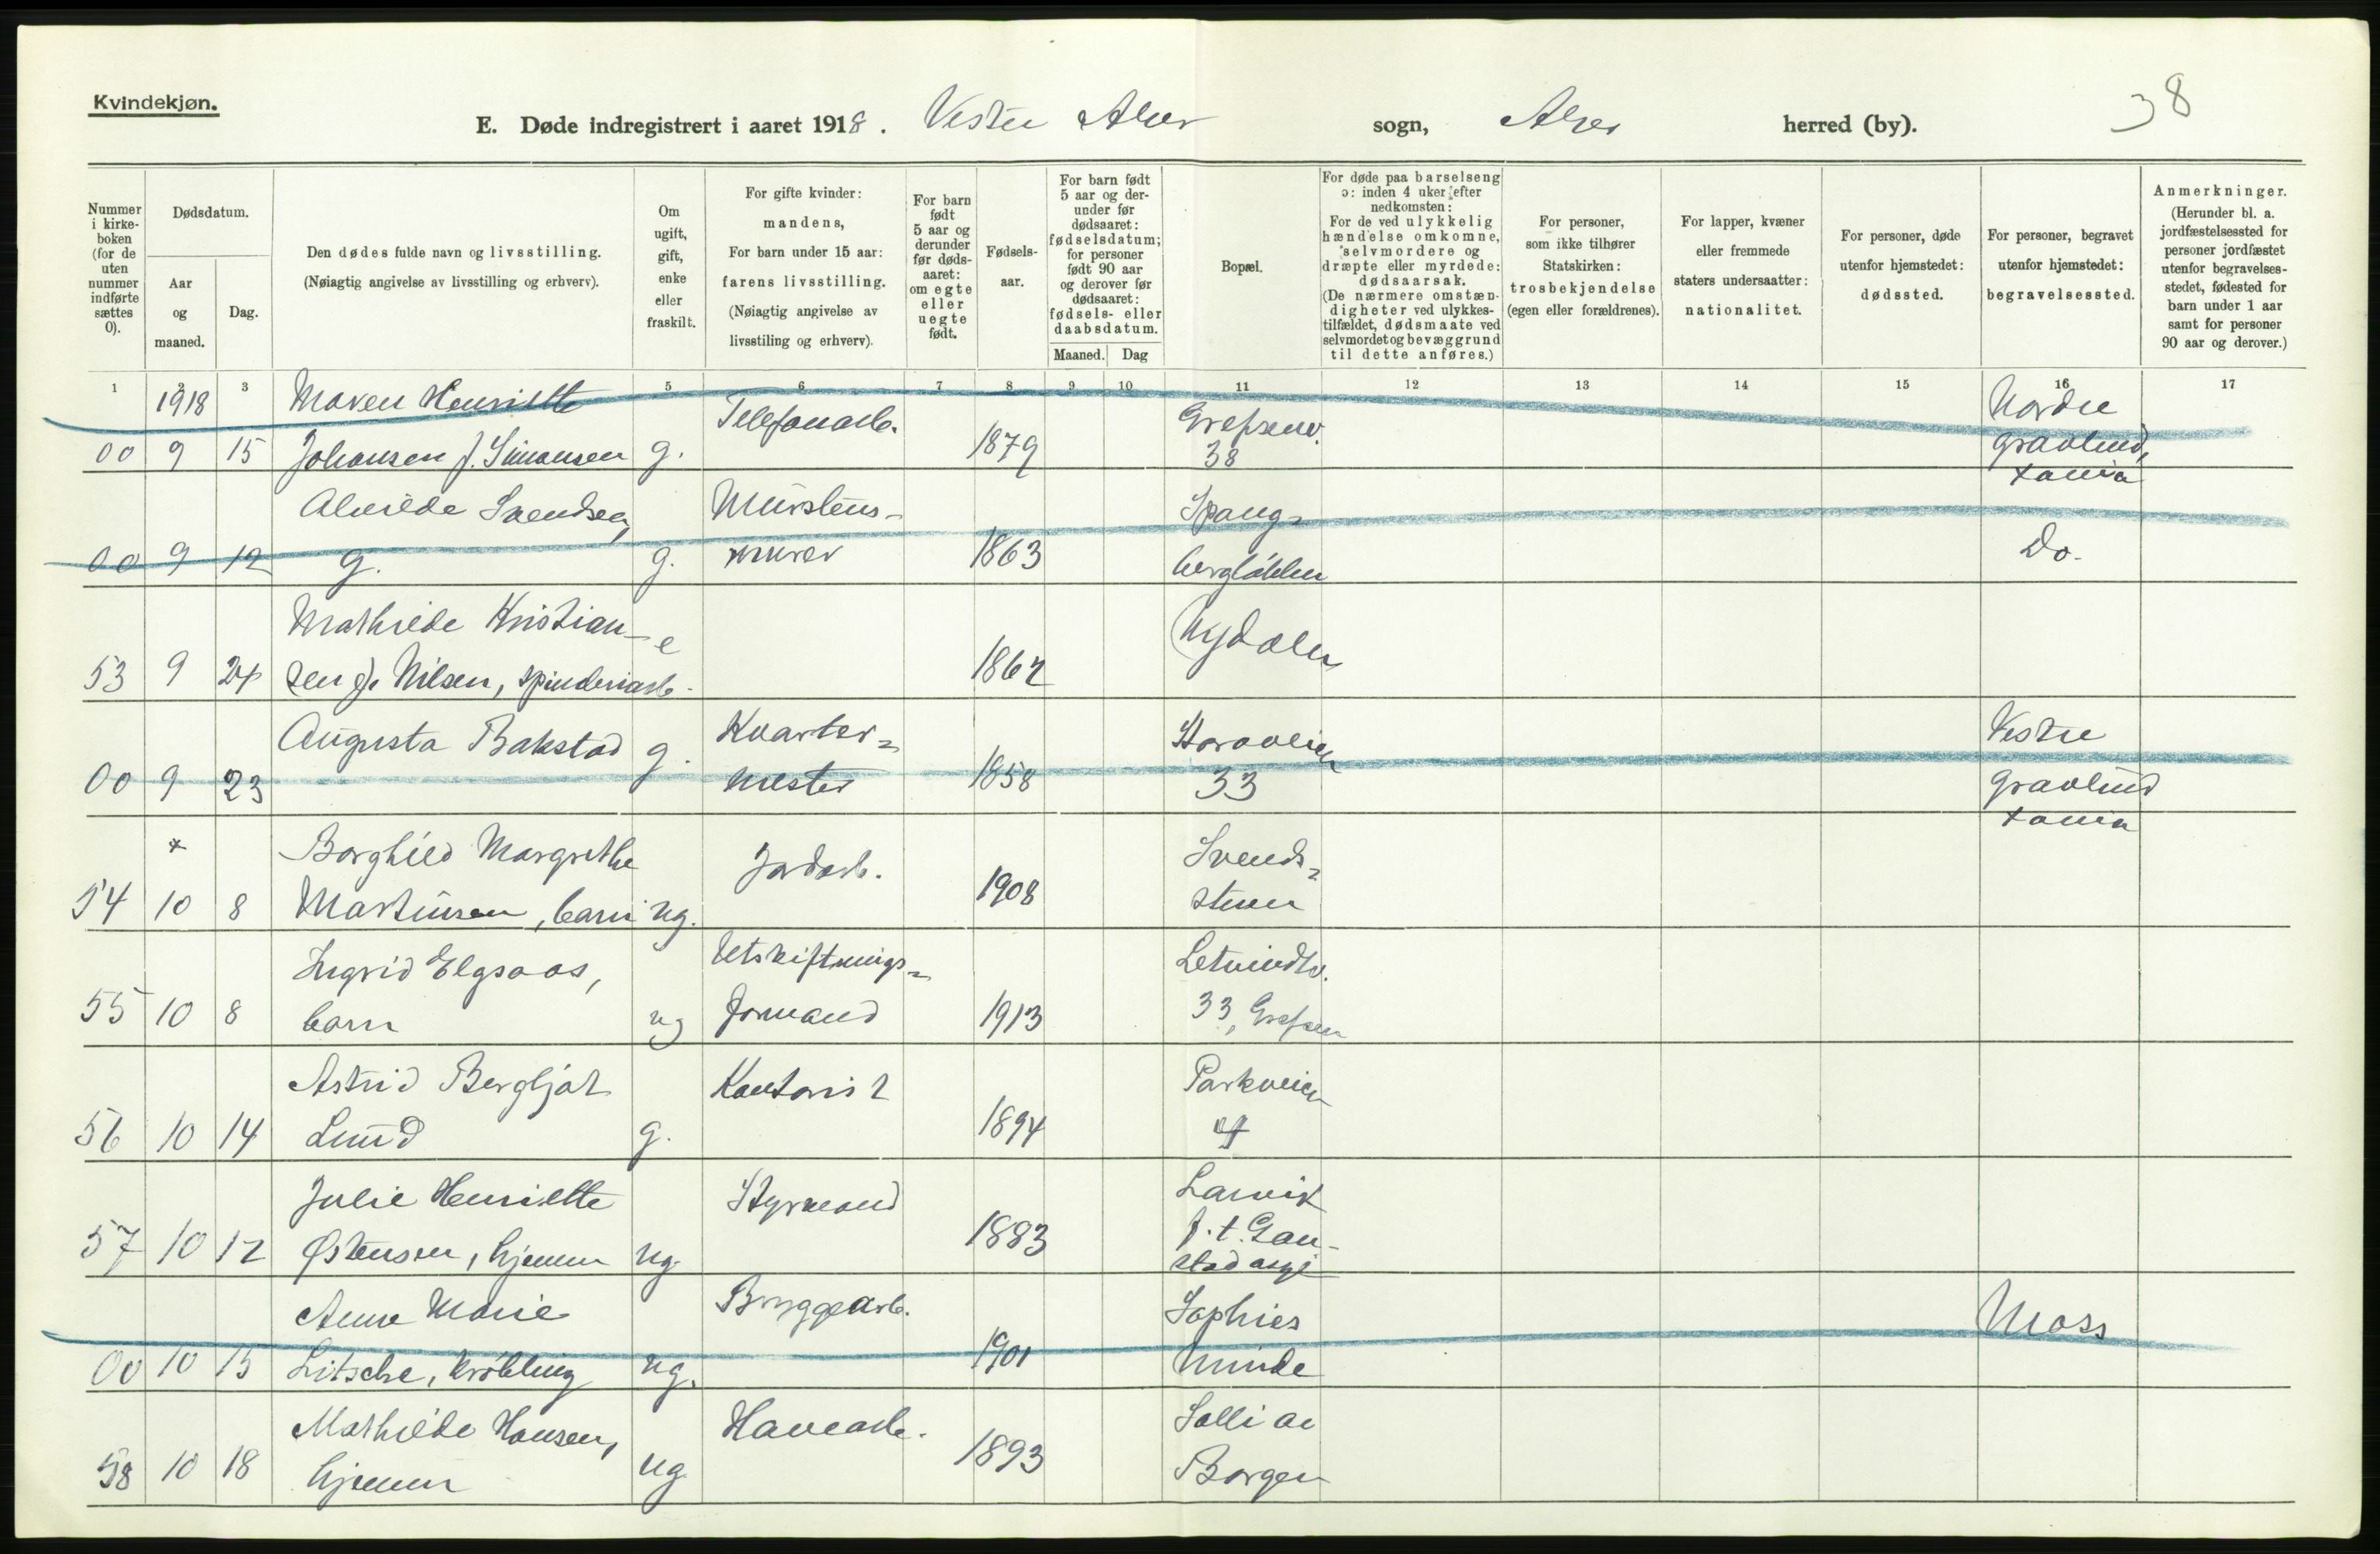 Kvindekjøn.
E. Døde indregistrert i aaret 1918. Vestre Aker sogn, Aker herred (by).
38
Nummer i kirkeboken (for de uten nummer indførte sættes 0).
Dødsdatum.
Aar og maaned.
Dag.
Den dødes fulde navn og livsstilling.
(Nøiagtig angivelse av livsstilling og erhverv).
Om ugift, gift, enke eller fraskilt.
For gifte kvinder: mandens,
For barn under 15 aar: farens livsstilling.
(Nøiagtig angivelse av livsstiling og erhverv).
For barn født 5 aar og derunder før dødsaaret: om egte eller uegte født.
Fødselsaar.
For barn født 5 aar og derunder før dødsaaret: fødselsdatum; for personer født 90 aar og derover før dødsaaret: fødsels- eller daabsdatum.
Maaned. Dag
Bopæl.
For døde paa barselseng ɔ: inden 4 uker efter nedkomsten:
For de ved ulykkelig hændelse omkomne, selvmordere og dræpte eller myrdede: dødsaarsak.
(De nærmere omstændigheter ved ulykkestilfældet, dødsmaate ved selvmordet og bevæggrund til dette anføres.)
For personer, som ikke tilhører Statskirken: trosbekjendelse (egen eller forældrenes).
For lapper, kvæner eller fremmede staters undersaatter: nationalitet.
For personer, døde utenfor hjemstedet: dødssted.
For personer, begravet utenfor hjemstedet: begravelsessted.
Anmerkninger.
(Herunder bl. a. jordfæstelsessted for personer jordfæstet utenfor begravelsesstedet, fødested for barn under 1 aar samt for personer 90 aar og derover.)
1 2 3 5 6 7 8 9 10 11 12 13 14 15 16 17
1918 Maren Henriette Telefonarb. Grefsenv. Nordre
00 9 15 Johansen f. Simonsen g. 1879 38 gravlund,
xania
Alvilde Svendsen, Murstens- Spang-
00 9 12 g. g. murer 1863 bergløkken Do.
Mathilde Kristian- e Nydalen
53 9 24 sen f. Nilsen, spinderiarb. 1862
Augusta Bakstad g. Kvarter- Vestre
00 9 23 mester 1858 33 gravlund
xania
x Borghild Margrethe Jordarb. Svends-
54 10 8 Martinsen, barn ug. 1908 stuen
Ingrid Elgsaas, Utskiftnings-
55 10 8 barn ug formand 1913 33, Grefsen
Astrid Bergljot Kontorist Parkveien
56 10 14 Lund g. 1894 4
Julie Henriette Styrmand Larvik
57 10 12 Østensen, hjemme ug. 1883 p.t. Gau-
stad asyl
Anne Marie Bryggearb. Sophies Moss
00 10 15 Litsche, krøbling ug. 1901 Minde
Mathilde Hansen, Havearb. Solli av
58 10 18 hjemme ug 1893 Borgen